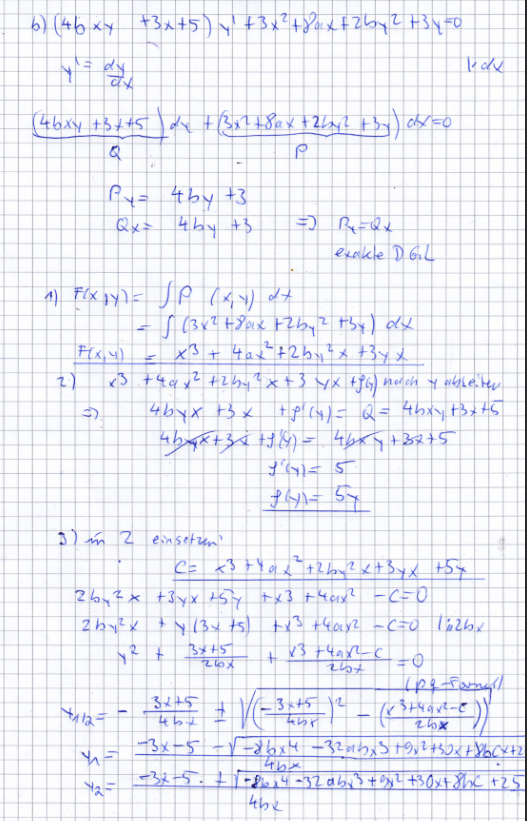 b) (4bxy +3x+5) y' +3x²+8ax+2by²+3y=0
y' = dy/dx |·dx
(4bxy +3x+5) dy + (3x²+8ax+2by²+3y) dx=0
Q P
Py= 4by +3
Qx= 4by +3 => Py=Qx
exakte DGL
1) F(x,y) = ∫P (x,y) dx
= ∫(3x²+8ax+2by²+3y) dx
F(x,y) = x³ + 4ax²+2by²x+3yx
2) x³ +4ax²+2by²x+3yx+f(y) nach y ableiten
=> 4byx +3x +f'(y)= Q = 4bxy+3x+5
4byx+3x +f'(y)= 4bxy+3x+5
f'(y)= 5
f(y)= 5y
3) in 2 einsetzen:
C= x³+4ax²+2by²x+3yx +5y
2by²x +3yx +5y +x³+4ax² -C=0
2by²x + y(3x+5) +x³+4ax² -C=0 |:2bx
y² + (3x+5)/(2bx) + (x³+4ax²-C)/(2bx) =0
(pq-Formel)
y1/2= - (3x+5)/(4bx) ± √((-3x+5)/(4bx))² - ((x³+4ax²-C)/(2bx))
y1= (-3x-5 -√(-8bx4 -32abx³+9x²+30x+8bCx+2))/(4bx)
y2= (-3x-5 +√(-8bx4 -32abx³+9x²+30x+8bC +25))/(4bx)